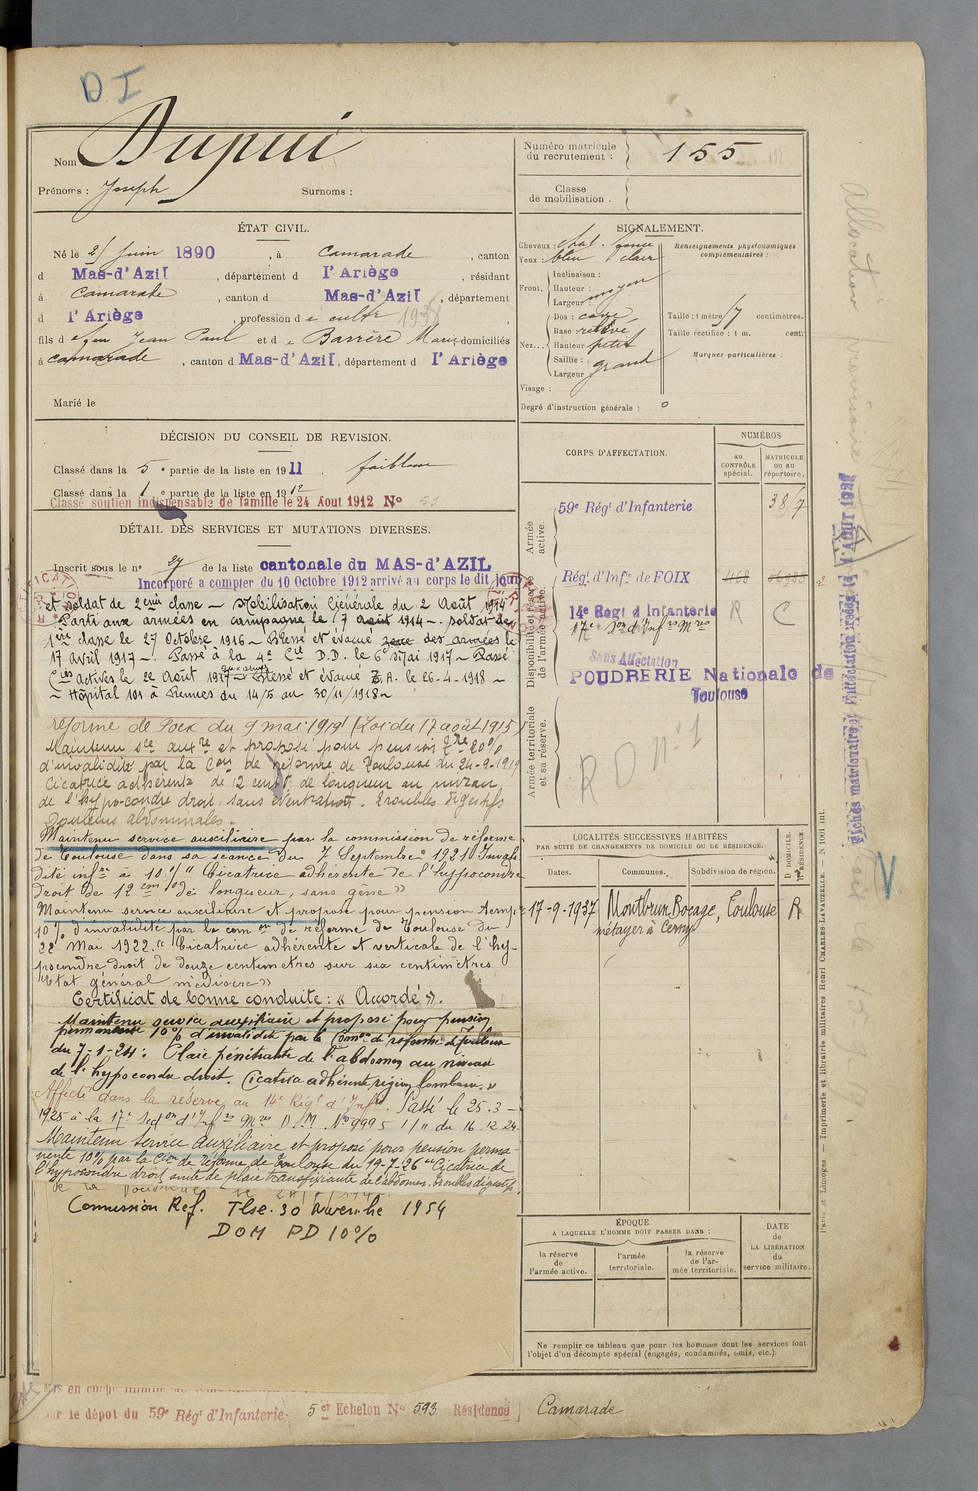 D I
Nom Dupui
Prénoms : Joseph Surnoms :
Numéro matricule du recrutement : 155
Classe de mobilisation .
ÉTAT CIVIL.
Né le 25 Juin 1890 , à Camarade , canton
d Mas-d'Azil , département d l'Ariège , résidant
à Camarade , canton d Mas-d'Azil , département
d l'Ariège , profession d e cultr 1938
fils d e feu Jean Paul et d e Barrère Marie domiciliés
à Camarade , canton d Mas-d'Azil , département d l'Ariège
Marié le
SIGNALEMENT.
Cheveux : chat. foncé
Yeux : bleu clair
Front, Inclinaison :
Hauteur : moyen
Largeur
Nez... Dos : cave
Base : relevé
Hauteur petit
Saillie : grand
Largeur
Visage :
Renseignements physionomiques complémentaires :
Taille : 1 mètre 57 centimètres.
Taille rectifiée : 1 m. cent.
Marques particulières :
Degré d'instruction générale :
DÉCISION DU CONSEIL DE REVISION.
Classé dans la 5 e partie de la liste en 1911 . faiblesse
Classé dans la 1 e partie de la liste en 1912
Classé soutien indispensable de famille le 24 Aout 1912 N° 53
DÉTAIL DES SERVICES ET MUTATIONS DIVERSES.
Inscrit sous le n° 27 de la liste cantonale du MAS-d'AZIL
Incorporé a compter du 10 Octobre 1912 arrivé au corps le dit jour
et soldat de 2ème classe – Mobilisation Générale du 2 Août 1914
Parti aux armées en campagne le 7 août 1914 –. soldat de
1ère classe le 27 Octobre 1916 – Blessé et évacué zone des armées le
17 Avril 1917 –. Passé à la 4e Cie D.D. le 6 Mai 1917 – Passé
Cies Actives le 22 Août 1917 – Blessé et évacué Z.A. le 26-4-1918 –
– Hôpital 101 à Rennes du 14/5 au 30/11/1918 –
reforme de Foix du 9 mai 1919 (Loi du 17 août 1915)
Maintenu sce auxre et proposé pour pension 20%
d'invalidité par la Con de réforme de Toulouse du 24-9-1919
Cicatrice adhérente de 12 centr de longueur au niveau
de l'hypocondre droit sans éventration. Troubles digestifs
Douleurs abdominales.
Maintenu service auxiliaire par la commission de réforme
de Toulouse dans sa séance du 7 Septembre 1921 Invali
dité infre à 10% "Cicatrice adhérente de l'hypocondre
droit de 12 cm de longueur, sans gêne »
Maintenu service auxiliaire et proposé pour pension temp.
10% d'invalidité par la com on de réforme de Toulouse du
22 Mai 1922. "Cicatrice adhérente et verticale de l'hy-
pocondre droit de douze centimètres sur six centimètres
"Etat général médiocre »
Certificat de bonne conduite : « Accordé ».
Maintenu service auxiliaire et proposé pour pension
permanente 10% d'invalidité par la Comon de réforme de Toulouse
du 7-1-24 : Plaie pénétrante de l'abdomen au niveau
de l'hypocondre droit. Cicatrice adhérente, région lombaire. »
Affecté dans la réserve au 14e Régt d'Infie. Passé le 25-3-
1925 à la 17e Secton d'Infres Mres D.M. No 9995 1/11 du 16-12-24.
Maintenu Service Auxiliaire et proposé pour pension perma-
nente 10% par la Cion de réforme de Toulouse du 19-7-26 "Cicatrice de
l'hypocondre droit, suite de plaie transfixiante de l'abdomen, troubles digestifs
Commission Ref. Tlse. 30 Novembre 1954
DOM PD 10%
par le dépot du 59e Régt d'Infanterie 5 er Echelon N° 593 Résidence Camarade
CORPS D'AFFECTATION.
NUMÉROS
AU CONTRÔLE spécial.
MATRICULE OU AU répertoire.
Armée active.
59e Régt d'Infanterie 3817
Disponibilité et réserve de l'armée active.
Régt d'Infie de FOIX 468
14e Regt d Infanterie R C
17e Son d'Infres Mres
Sans Affectation
POUDRERIE Nationale de Toulouse
Armée territoriale et sa réserve.
R D N° 1
LOCALITÉS SUCCESSIVES HABITÉES
PAR SUITE DE CHANGEMENTS DE DOMICILE OU DE RÉSIDENCE.
Dates. Communes. Subdivision de région. D DOMICILE. R RÉSIDENCE.
17-9-1937 Montbrun Bocage, Toulouse R
métayer à Cerny
ÉPOQUE
A LAQUELLE L'HOMME DOIT PASSER DANS :
la réserve de l'armée active.
l'armée territoriale.
la réserve de l'armée territoriale.
DATE de LA LIBÉRATION du service militaire.
Ne remplir ce tableau que pour les hommes dont les services font
l'objet d'un décompte spécial (engagés, condamnés, omis, etc.).
Paris et Limoges. — Imprimerie et librairie militaires Henri CHARLES-LAVAUZELLE. — N 1001 int.
allocation provisoire
V